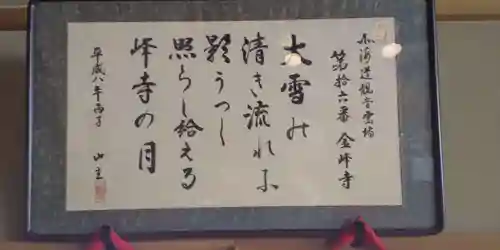 北海道観音霊場
第拾六番 金峰寺
大雪の
清き流れに
影うつし
照らし給える
峰寺の月
平成八年丙子 山主